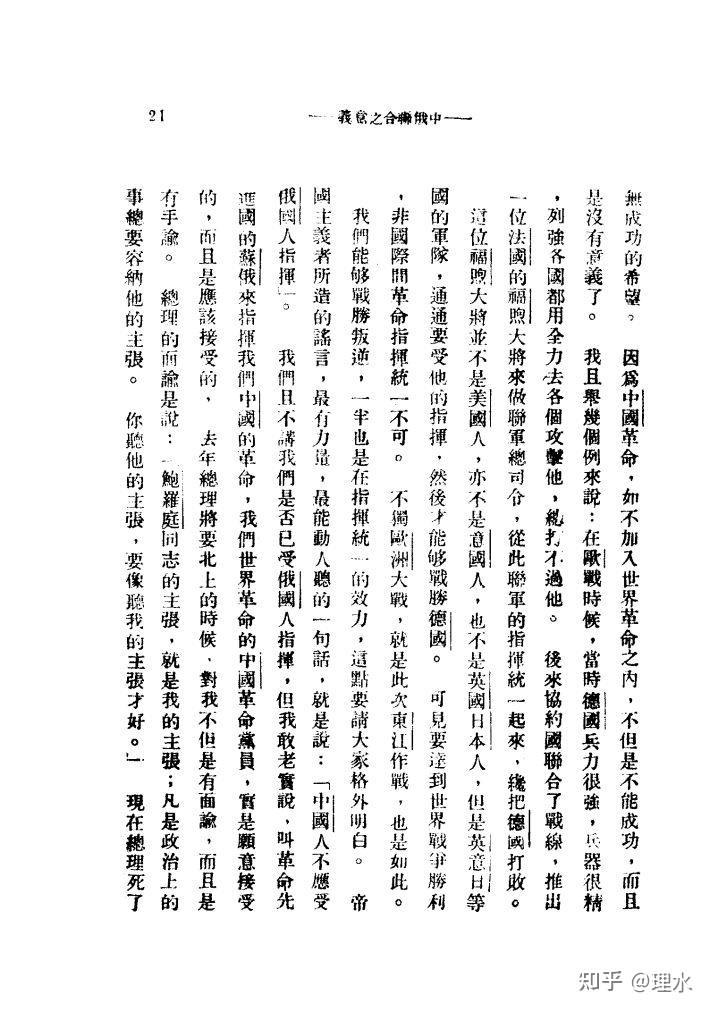 21
——義意之合聯俄中——
無成功的希望。　因為中國革命，如不加入世界革命之內，不但是不能成功，而且
是沒有意義了。　我且舉幾個例來說：在歐戰時候，當時德國兵力很強，兵器很精
，列強各國都用全力去各個攻擊他，總打不過他。　後來協約國聯合了戰線，推出
一位法國的福煦大將來做聯軍總司令，從此聯軍的指揮統一起來，纔把德國打敗。
這位福煦大將並不是美國人，亦不是意國人，也不是英國日本人，但是英意日等
國的軍隊，通通要受他的指揮，然後才能够戰勝德國。　可見要達到世界戰爭勝利
，非國際間革命指揮統一不可。　不獨歐洲大戰，就是此次東江作戰，也是如此。
我們能够戰勝叛逆，一半也是在指揮統一的效力，這點要請大家格外明白。　帝
國主義者所造的謠言，最有力量，最能動人聽的一句話，就是說：「中國人不應受
俄國人指揮」。　我們且不講我們是否已受俄國人指揮，但我敢老實說，叫革命先
進國的蘇俄來指揮我們中國的革命，我們世界革命的中國革命黨員，實是願意接受
的，而且是應該接受的，　去年總理將要北上的時候，對我不但是有面諭，而且是
有手諭。　總理的面諭是說：「鮑羅庭同志的主張，就是我的主張；凡是政治上的
事總要容納他的主張。　你聽他的主張，要像聽我的主張才好。」　現在總理死了
知乎 @理水